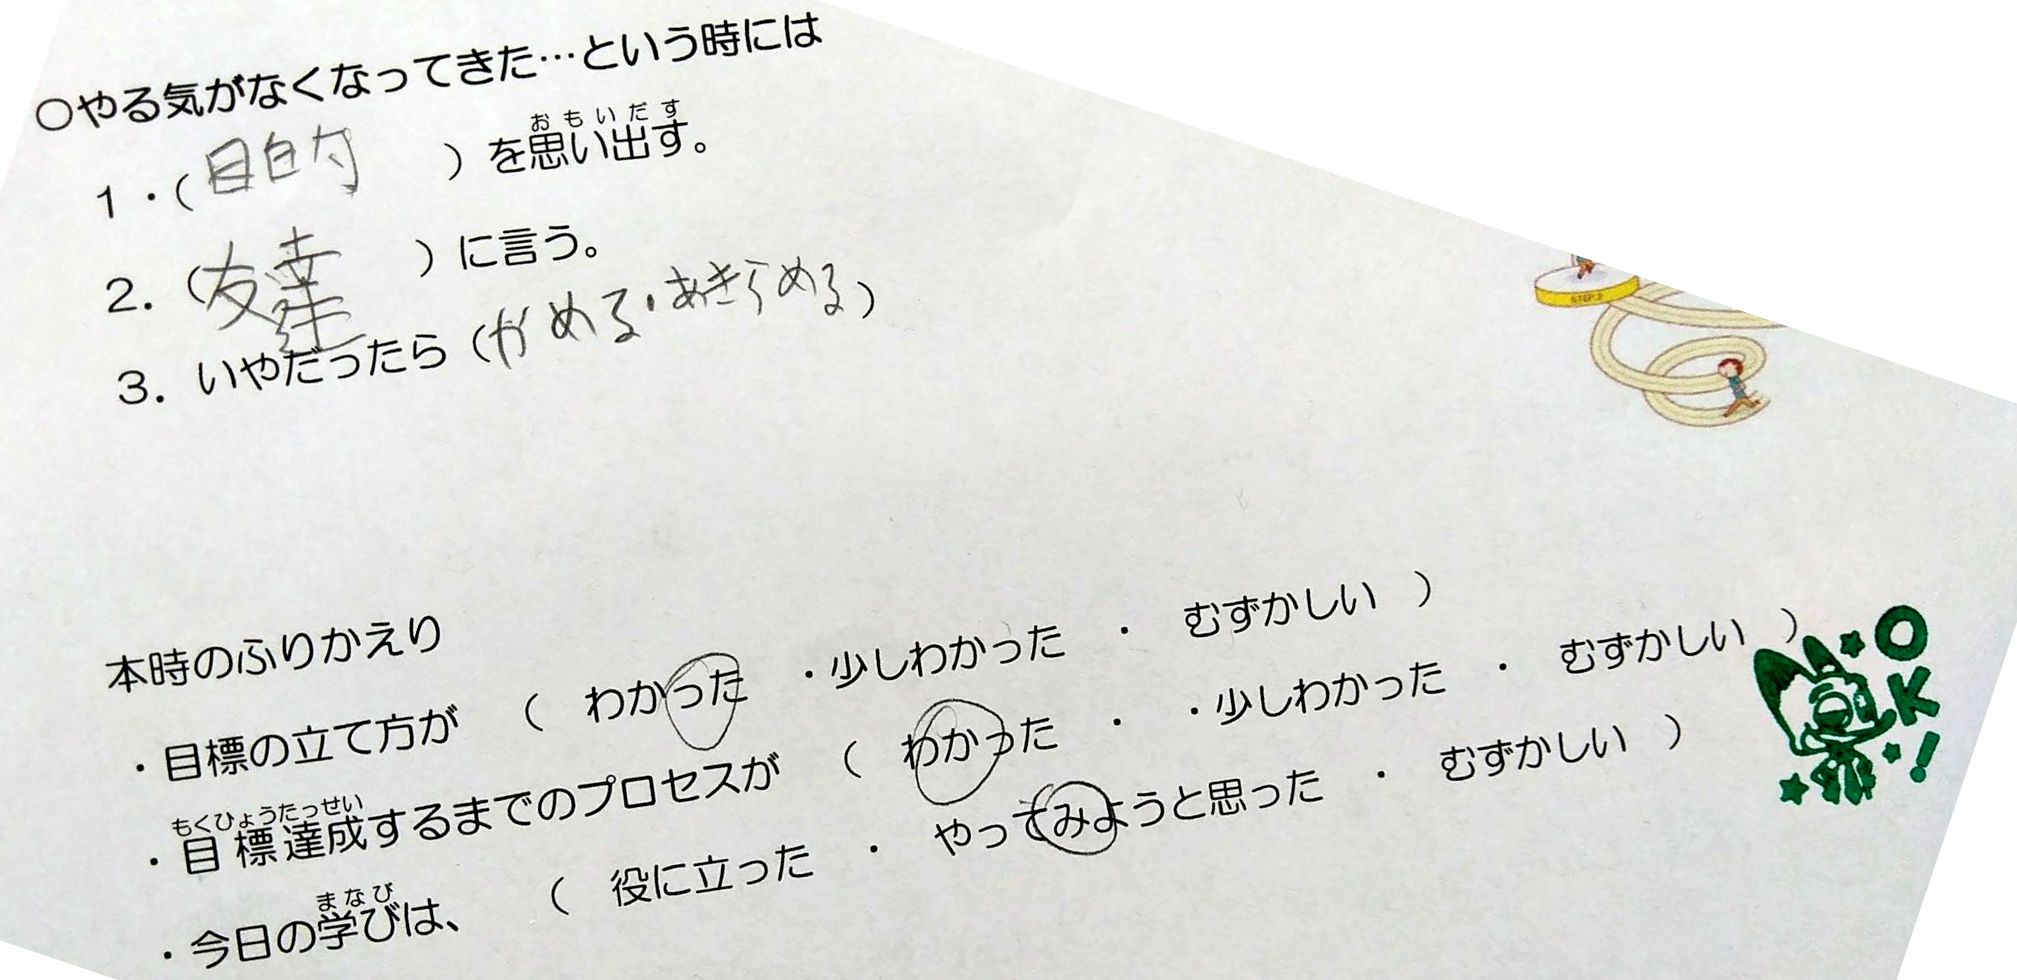 ○やる気がなくなってきた…という時には
おもいだす
1・(目的)を思い出す。
2. (友達)に言う。
3. いやだったら(かめる・あきらめる)
STEP.3
本時のふりかえり
・目標の立て方が ( わかった ・少しわかった ・ むずかしい )
もくひょうたっせい
・目標達成するまでのプロセスが ( わかった ・ ・少しわかった ・ むずかしい )
まなび
・今日の学びは、 ( 役に立った ・ やってみようと思った ・ むずかしい )
OK!